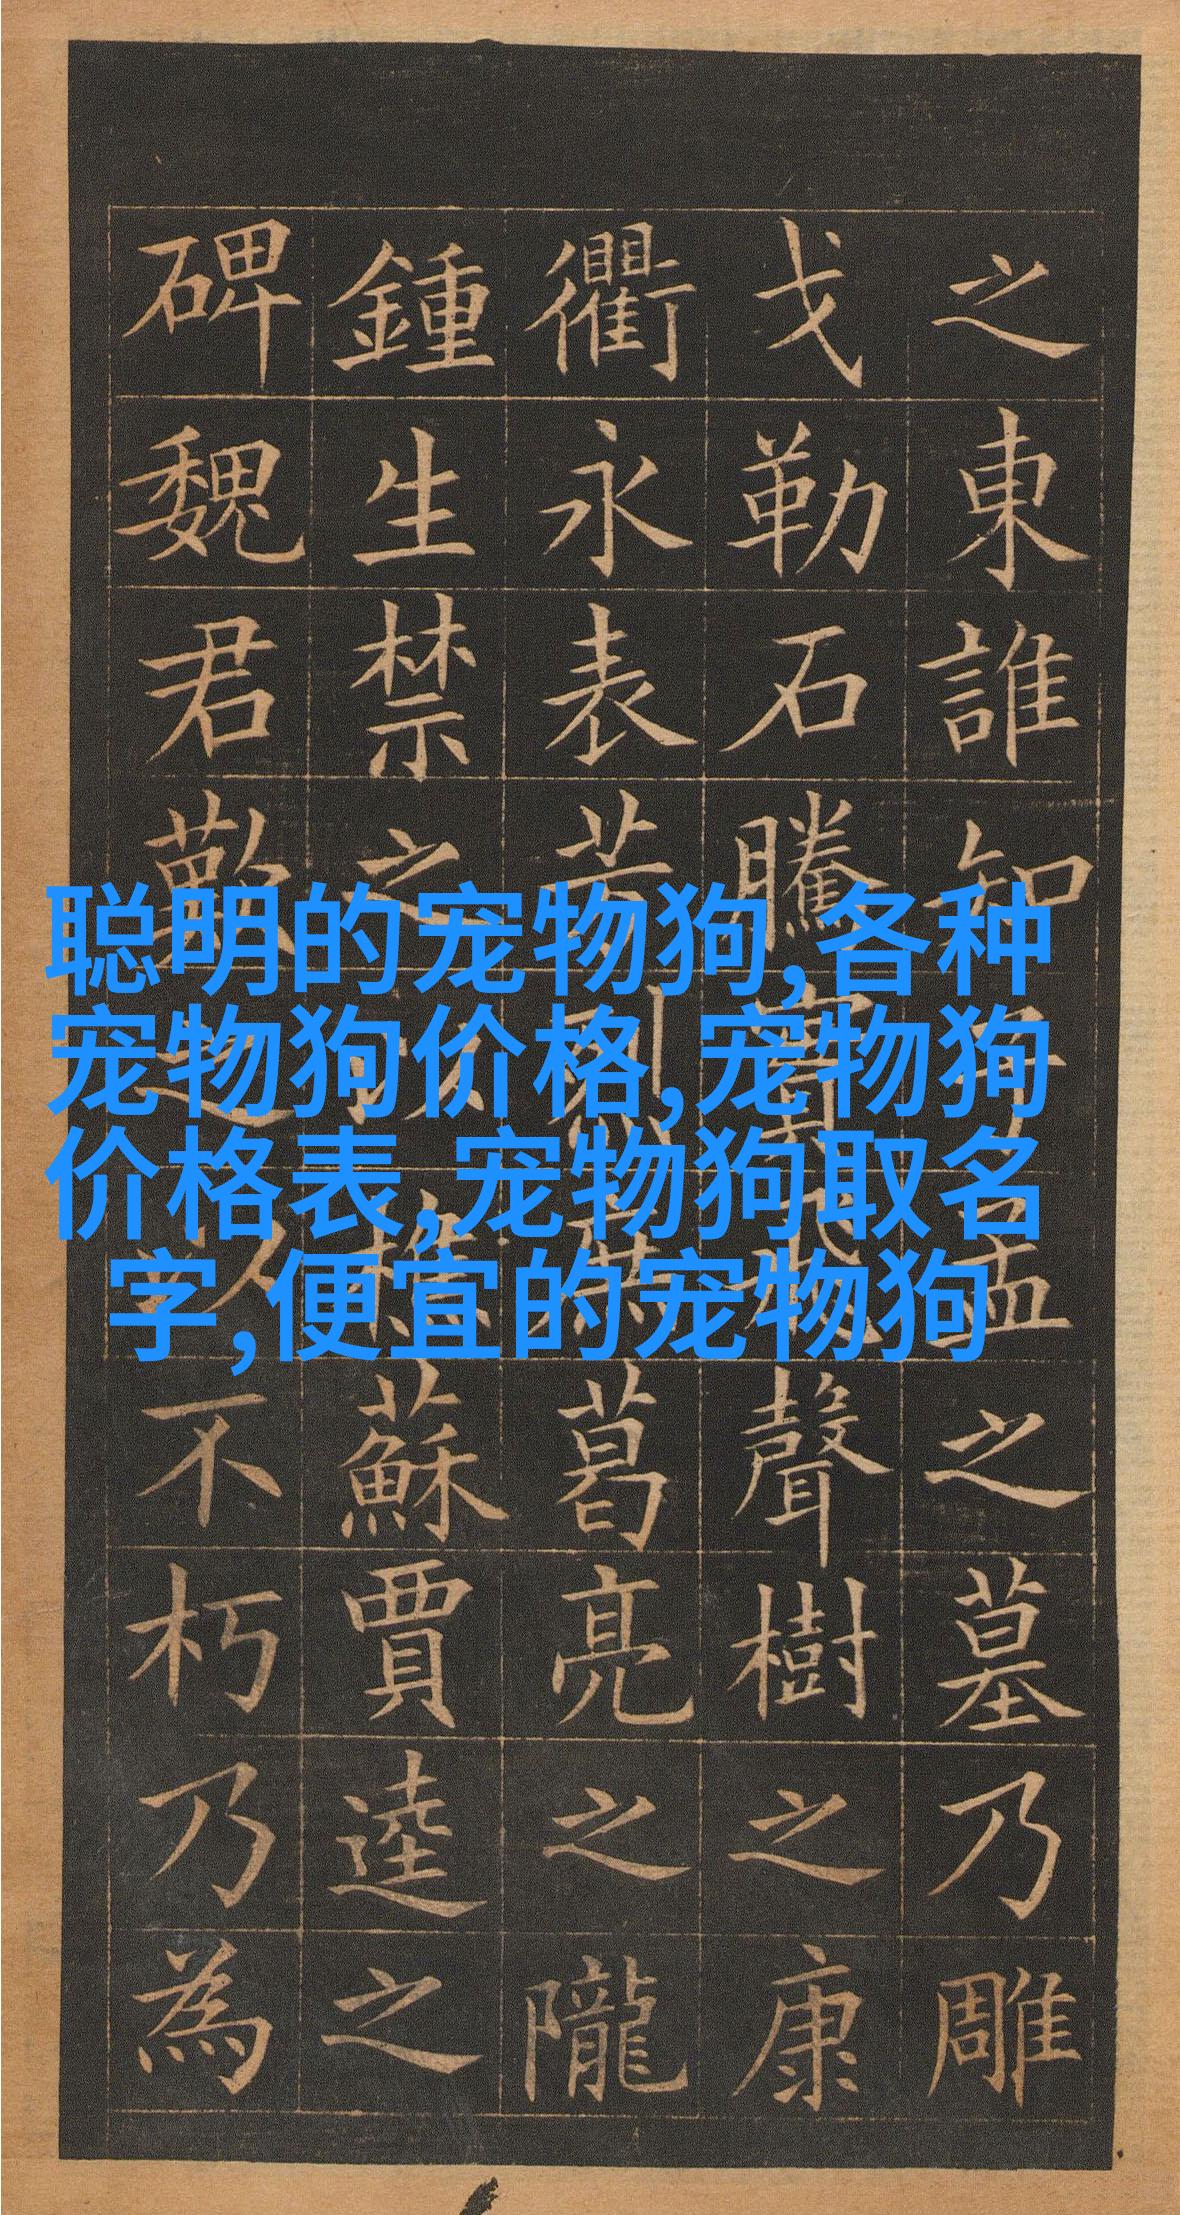 之東誰知孟之墓乃雕
戈勒石騰實聲樹之康
衢永表芳烈葛亮之隴
鍾生禁之樵蘇賈逵之
碑魏君歎以不朽乃為
聪明的宠物狗,各种
宠物狗价格,宠物狗
价格表,宠物狗取名
字,便宜的宠物狗